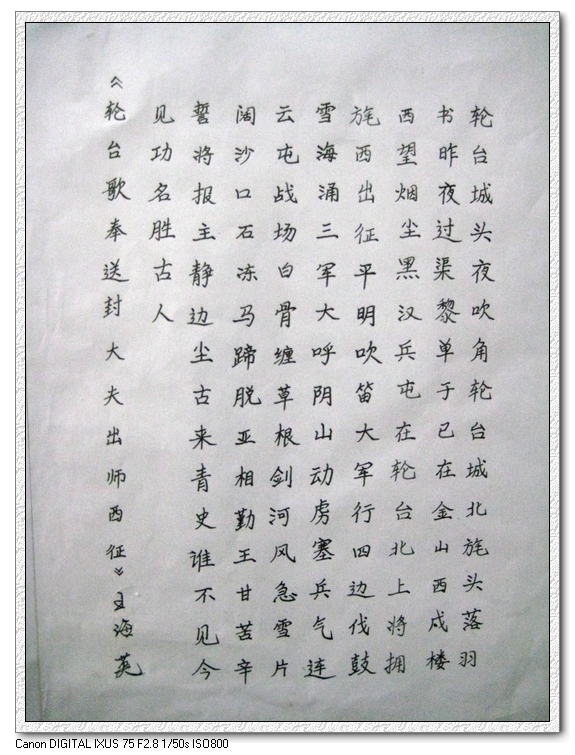 轮台城头夜吹角轮台城北旄头落羽
书昨夜过渠黎单于已在金山西戍楼
西望烟尘黑汉兵屯在轮台北上将拥
旄西出征平明吹笛大军行四边伐鼓
雪海涌三军大呼阴山动虏塞兵气连
云屯战场白骨缠草根剑河风急雪片
阔沙口石冻马蹄脱亚相勤王甘苦辛
誓将报主静边尘古来青史谁不见今
见功名胜古人
《轮台歌奉送封大夫出师西征》王海英
Canon DIGITAL IXUS 75 F2.8 1/50s ISO800